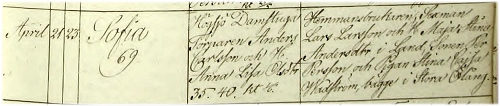 April 21 23 Sofia
69
Torparen Anders
Carlsson och H.
Anna Lisa Olsdtr
35. 40.
Hemmansbrukaren, Sexman
Lars Larsson och H. Maja Stina
Andersdtr i Lund, Sonen Per
Persson och Pigan Stina Cajsa
Wadström, bägge i Stora